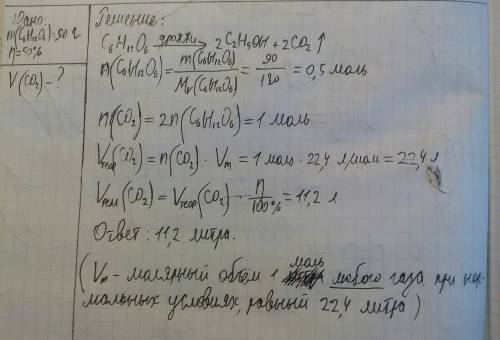 Дано:
m(C₆H₁₂O₆)=90 г
η=50%
V(CO₂)-?
Решение:
C₆H₁₂O₆ дрожжи→ 2C₂H₅OH + 2CO₂↑
n(C₆H₁₂O₆) = m(C₆H₁₂O₆)/Mr(C₆H₁₂O₆) = 90/180 = 0,5 моль
n(CO₂) = 2n(C₆H₁₂O₆) = 1 моль
Vтеор(CO₂) = n(CO₂) · Vm = 1 моль · 22,4 л/моль = 22,4 л
(CO₂) = Vтеор(CO₂) · η/100% = 11,2 л
Ответ: 11,2 литра.
(Vm - молярный объем 1 моль любого газа при нор-
мальных условиях, равный 22,4 литра)